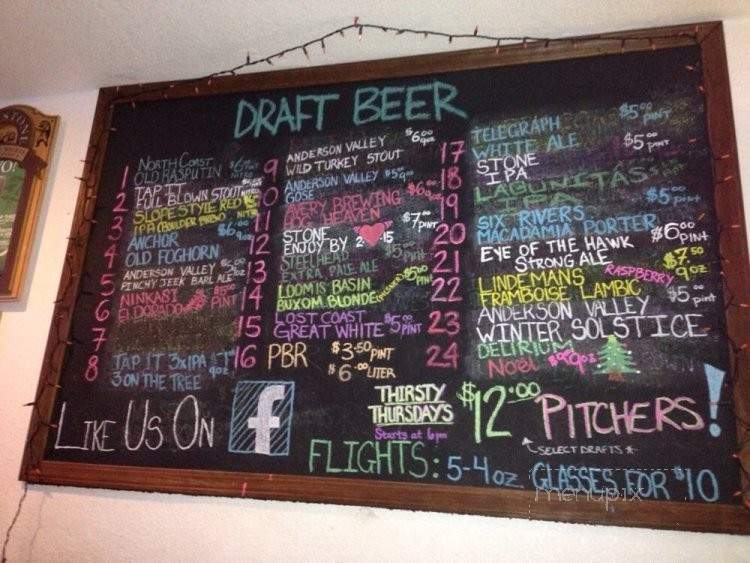 DRAFT BEER
1 NORTH COAST
OLD RASPUTIN NITRO
2 TAP IT
FULL BLOWN STOUT NITRO
3 SLOPE STYLE RED
IPA (BOULDER BREW) NITRO
4 ANCHOR $6
OLD FOGHORN 9oz
5 ANDERSON VALLEY
PINCHY JEEK BARL ALE
6 NINKASI
EL DORADO PINT
7
8 TAP IT 3XIPA
3 ON THE TREE 9oz
9 ANDERSON VALLEY $6.00
WILD TURKEY STOUT 9oz
10 ANDERSON VALLEY
GOSE
11 AVERY BREWING
HOG HEAVEN
12 STONE $7.00
ENJOY BY 2 15 PINT
13 STEELHEAD
EXTRA PALE ALE PINT
14 LOOMIS BASIN $5.00
BUXOM BLONDE (PILSNER) PINT
15 LOST COAST
GREAT WHITE $5.00 PINT
16 PBR $3.50 PINT
$6.00 LITER
17 TELEGRAPH $5.00
WHITE ALE PINT
18 STONE $5.00
IPA PINT
19 LAGUNITAS
IPA
20 SIX RIVERS $5.00
MACADAMIA PORTER PINT
21 EYE OF THE HAWK $6.00
STRONG ALE PINT
22 LINDEMANS RASPBERRY $7.50
FRAMBOISE LAMBIC 9oz
23 ANDERSON VALLEY $5.00
WINTER SOLSTICE PINT
24 DELIRIUM
NOEL 9oz
LIKE US ON f
THIRSTY
THURSDAY'S
Starts at 6pm
$12.00 PITCHERS!
SELECT DRAFTS *
FLIGHTS: 5-4oz GLASSES FOR $10
menupix
STONE